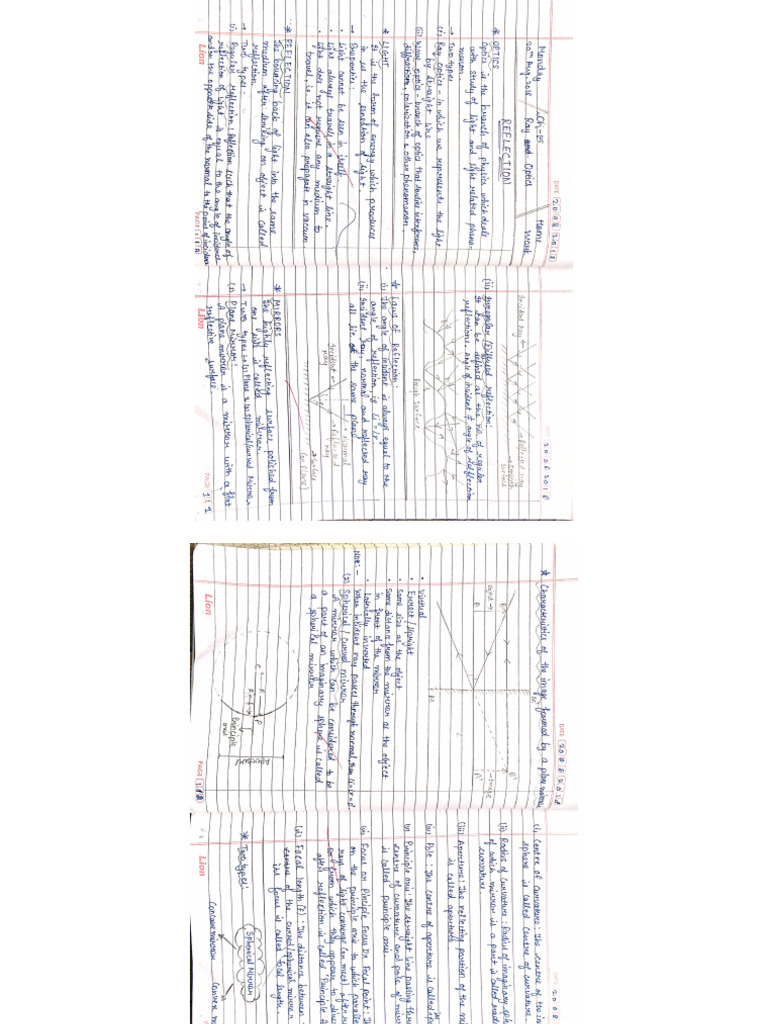 DATE 20 08 2018
Monday Ch-05 Home
20th Aug, 2018 Ray and Optics Work
REFLECTION
* OPTICS
Optics is the branch of physics which deals
with study of light and light related pheno-
menon.
→ Two types
(i) Ray optics - in which we represents the light
by straight line
(ii) Wave optics - branch of optics that studies interference,
diffraction, polarization & other phenomenon.
* LIGHT
It is the form of energy which produces
in us the sensation of light.
→ Properties:
• Light cannot be seen in itself.
• Light always travels in a straight line.
• Light does not require any medium to
travel, i.e. it can also propagate in vacuum
* REFLECTION
The bouncing back of light into the same
medium after striking an object is called
reflection.
→ Two types:
(i) Regular reflection: Reflection such that the angle of
reflection of light is equal to the angle of incidence
and on the opposite side of the normal to the point of incident
Lion
PAGE 110
DATE 20 08 2018
Incident ray
Reflected ray
Smooth
surface
(ii) Irregular/Diffused reflection:
It can be defined as the no. of regular
reflections, angle of incident ≠ angle of reflection
Rough Surface
* Laws of Reflection:
(i) The angle of incident is always equal to the
angle of reflection i.e. ∠i = ∠r
(ii) Incident ray, normal and reflected ray
all lie at the same plane
Incident
ray
Normal
Reflected
ray
Surface
(or Plane)
* MIRRORS
The highly reflecting surface polished from
one side is called mirror.
→ Two types i.e. (i) Plane & (ii) Spherical/Curved Mirror
(1) Plane Mirror:
A plane mirror is a mirror with a flat
reflective surface.
Lion
PAGE 111
DATE 20 08 2018
* Characteristics of the image formed by a plane mirror
M
B
B'
Object
Image
A
A'
M'
• Virtual
• Errect / Upright
• Same size as the object
• Same distance from the mirror as the object
in front of the mirror
• Laterally inverted
Note:- When incident ray passes through normal, then ∠i=∠r=0
(2) Spherical / Curved mirror
A mirror which can be considered to be
a part of an imaginary sphere is called
a spherical mirror
C
F
P
R
Principle
axis
Lion
PAGE 112
20 08
(i) Centre of curvature: The centre of the
sphere is called centre of curvature.
(ii) Radius of curvature: Radius of imaginary sph
of which mirror is a part is called
curvature.
(iii) Aperture: The reflecting portion of the mi
is called aperture
(iv) Pole: The centre of aperture is called
(v) Principle axis: The straight line passing thro
centre of curvature and pole of mirr
is called principle axis.
(vi) Focus or Principle Focus or Focal point: Th
on the principle axis to which paralle
rays of light converge (or meet) after
or from which they appear to
after reflection is called 'Principle
(vii) Focal length (f): The distance between
centre of the curved/spherical mirror
its focus is called focal length.
* Two types:
Spherical Mirror
Concave mirror
Convex m
Lion